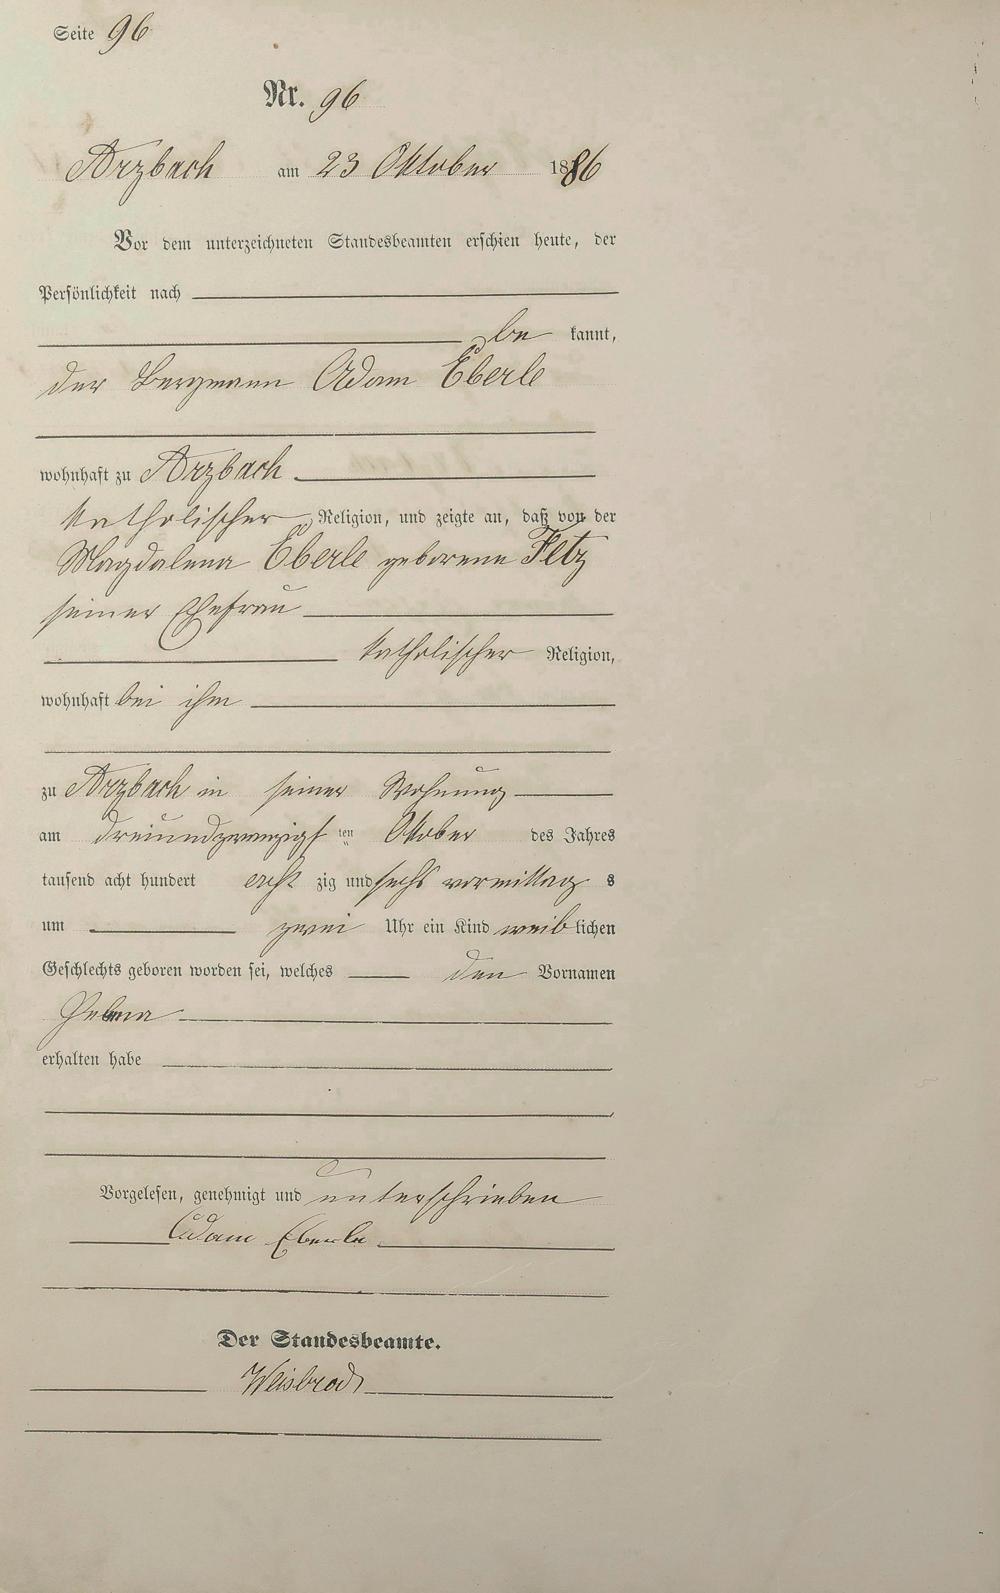 Seite 96
Nr. 96
Arzbach am 23 Oktober 1886
Vor dem unterzeichneten Standesbeamten erschien heute, der
Persönlichkeit nach
be kannt,
der Bergmann Adam Eberle
wohnhaft zu Arzbach
katholischer Religion, und zeigte an, daß von der
Magdalena Eberle geborene Fetz
seiner Ehefrau
katholischer Religion,
wohnhaft bei ihm
zu Arzbach in seiner Wohnung
am dreiundzwanzigsten Oktober des Jahres
tausend acht hundert acht zig und sechs vormittag s
um zwei Uhr ein Kind weiblichen
Geschlechts geboren worden sei, welches den Vornamen
erhalten habe
Vorgelesen, genehmigt und unterschrieben
Adam Eberle
Der Standesbeamte.
Weisbrod